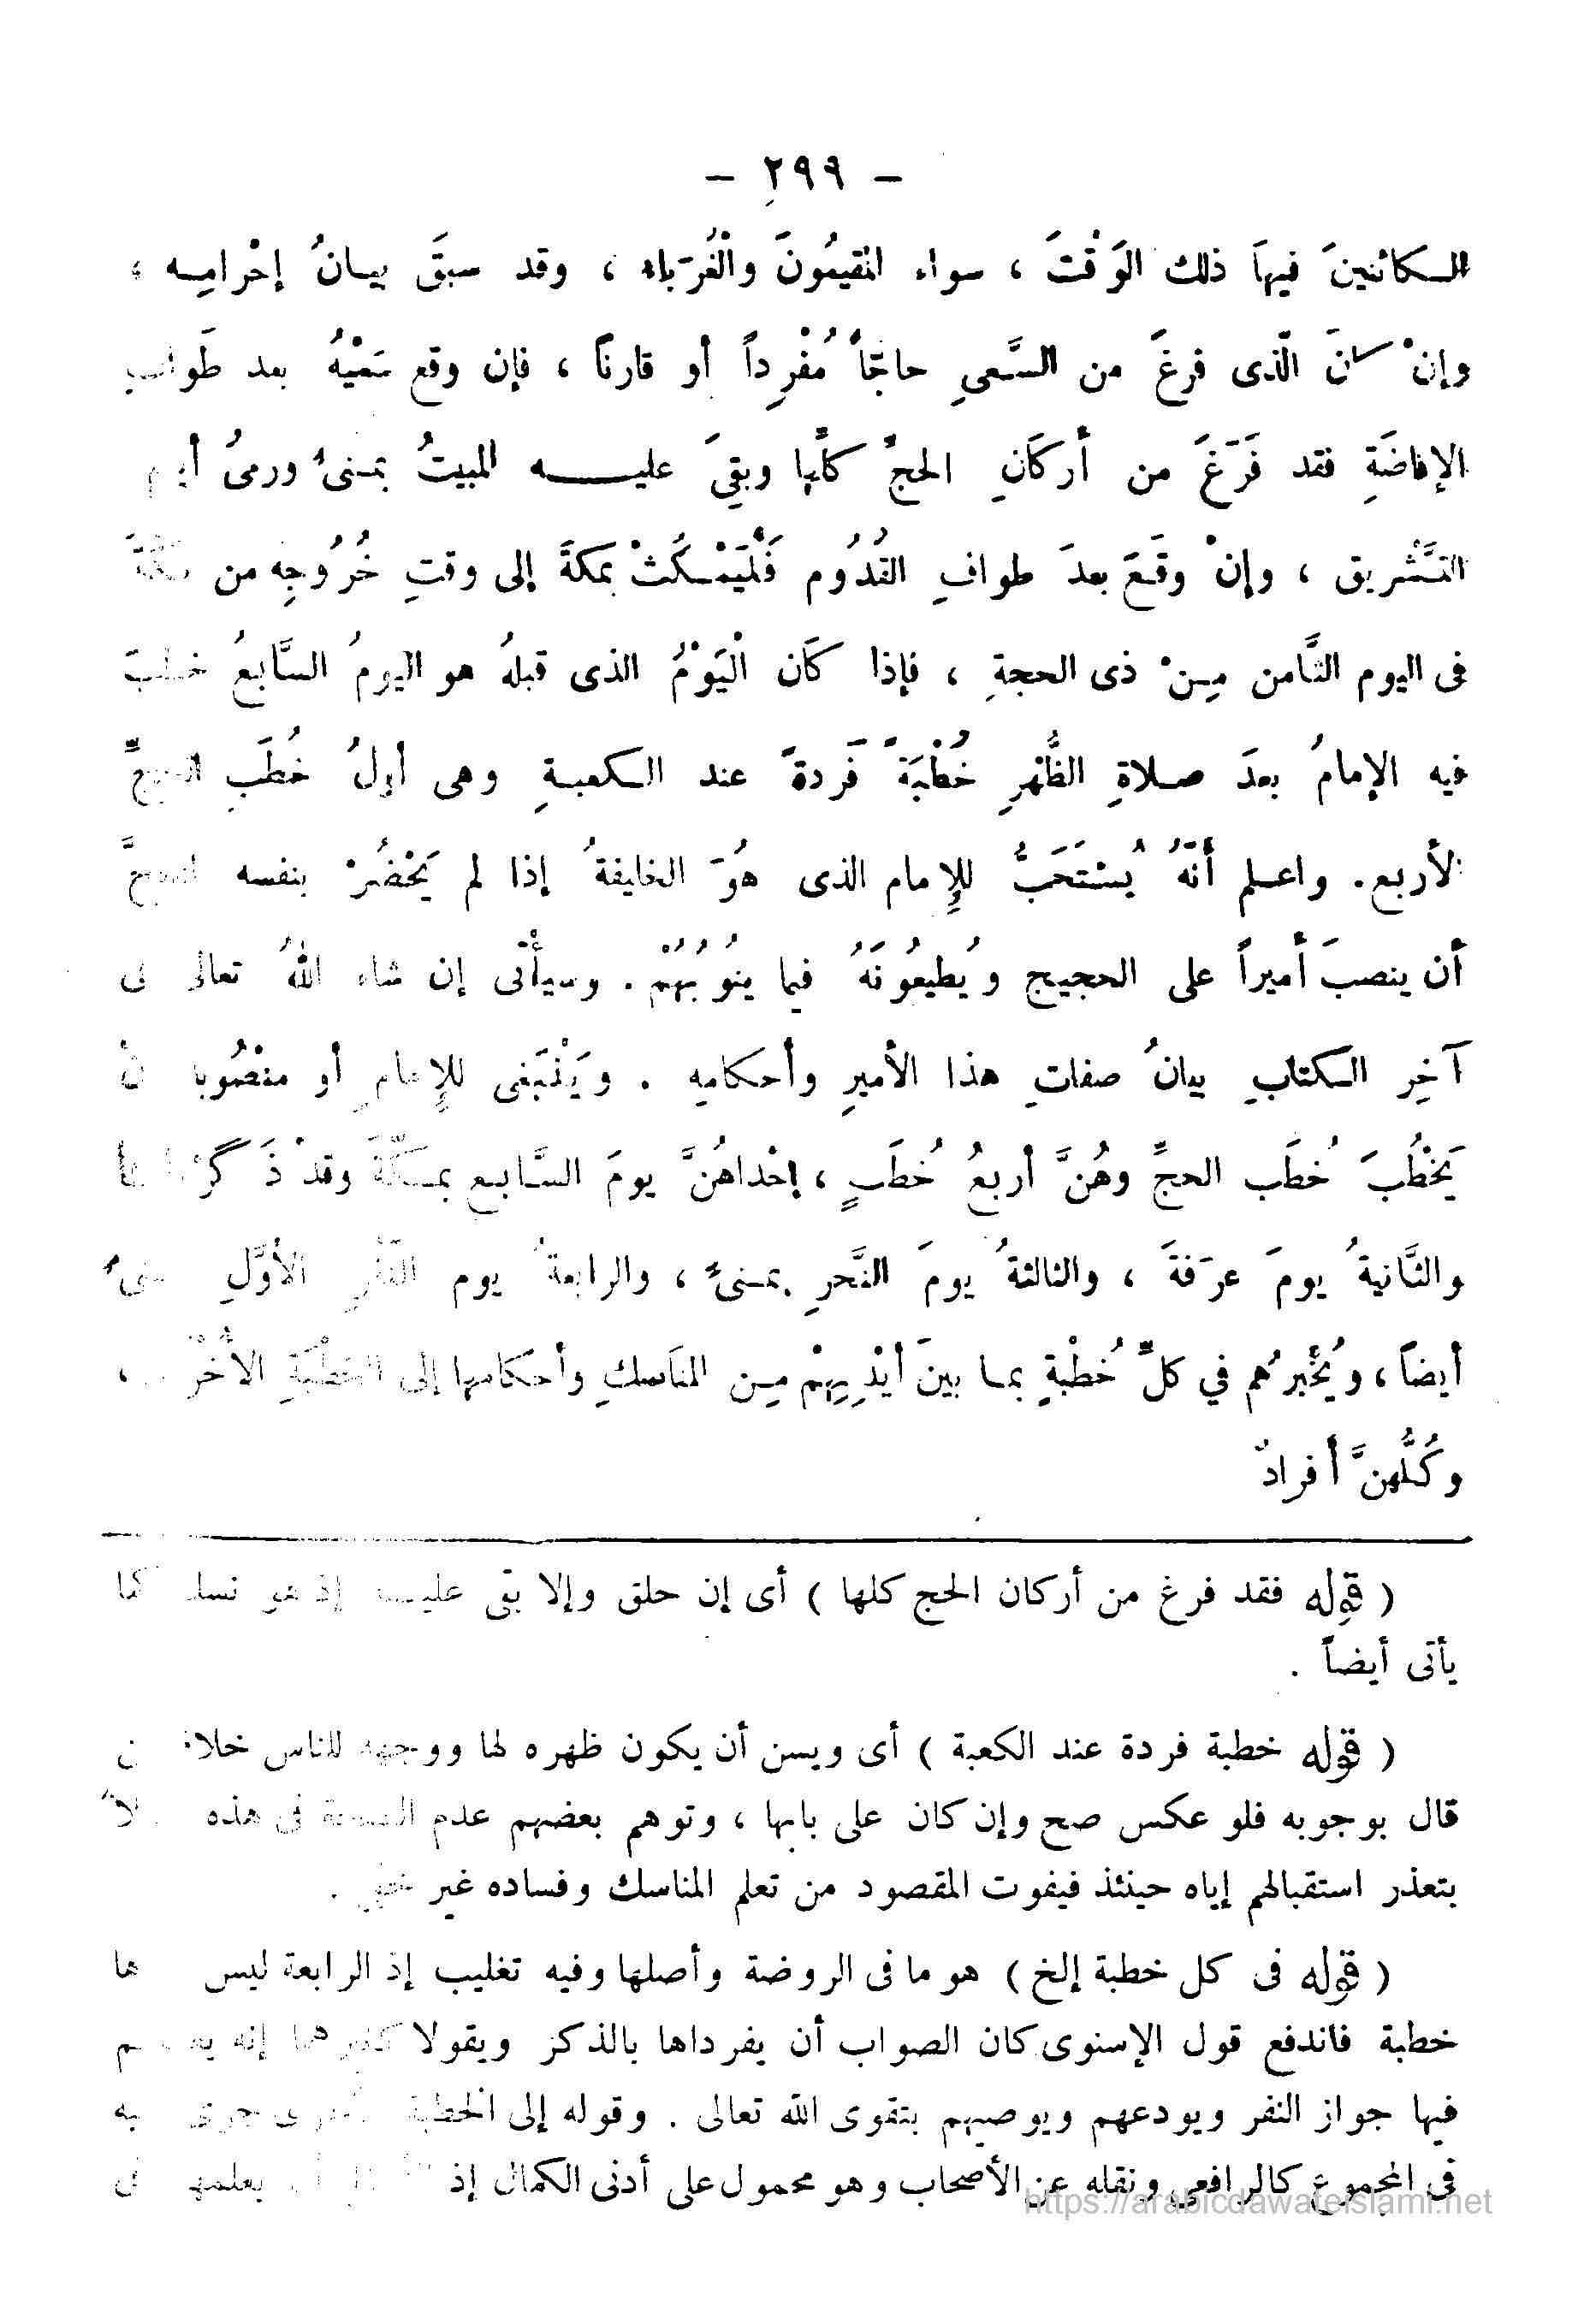 — ٢٩٩ —
الكائنينَ فيهاَ ذلك الوَقْتَ ، سواء المقيمُونَ والْغُرَباء ، وقد سبَقَ بيانُ إحْرامِه ،
وإنْ كانَ الّذى فرغَ من السَّعىِ حاجّاً مُفْرِداً أو قارناً ، فإن وقع سَعْيُهُ بعد طَوافِ
الإفاضَةِ فقد فَرَغَ من أركَانِ الحجِّ كلِّها وبقِىَ عليه المبيتُ بمنىً ورمىُ أيام
التَّشْريق ، وإنْ وقَعَ بعدَ طوافِ القُدُوم فَلْيَمْكُثْ بمكةَ إلى وقتِ خُرُوجِه من مَكَّةَ
فى اليوم الثَّامن مِنْ ذى الحجةِ ، فإذا كَان الْيَوْمُ الذى قبلهُ هو اليومُ السَّابعُ خطبَ
فيه الإمامُ بعدَ صلاةِ الظُّهْرِ خُطْبَةً فَردةً عند الكعبةِ وهى أولُ خُطَبِ الحجِّ
الأربع. واعلم أنَّهُ يُسْتَحَبُّ للإمام الذى هُوَ الخليفةُ إذا لم يَحْضُرْ بنفسه الحجَّ
أن ينصبَ أميراً على الحجيج ويُطيعُونَهُ فيما ينُوبُهُمْ . وسيأْتى إن شاء اللهُ تعالى فى
آخِر الكتابِ بيانُ صفاتِ هذا الأميرِ وأحكامِه . ويَنْبَغى للإمامِ أو منصُوبه أنْ
يَخْطُبَ خُطَب الحجِّ وهُنَّ أربعُ خُطَبٍ ، إحْداهُنَّ يومَ السَّابع بمكّةَ وقدْ ذَكَرْناها
والثَّانيةُ يومَ عرَفةَ ، والثالثةُ يومَ النَّحرِ بمنىً ، والرابعةُ يوم النَّفْرِ الأوَّلِ بمنىً
أيضاً ، ويُخْبرُهم في كلِّ خُطْبةٍ بما بينَ أيْدِيهِمْ مِن المناَسكِ وأحكامها إلى الخطْبَةِ الأُخْرى ،
وكُلُّهنَّ أفرادٌ
( قوله فقد فرغ من أركان الحج كلها ) أى إن حلق وإلا بقى عليه إذ هو نسك كما
يأتى أيضاً .
( قوله خطبة فردة عند الكعبة ) أى ويسن أن يكون ظهره لها ووجهه للناس خلافا لمن
قال بوجوبه فلو عكس صح وإن كان على بابها ، وتوهم بعضهم عدم الصحة فى هذه
بتعذر استقبالهم إياه حينئذ فيفوت المقصود من تعلم المناسك وفساده غير خفى .
( قوله فى كل خطبة إلخ ) هو ما فى الروضة وأصلها وفيه تغليب إذ الرابعة ليس بعدها
خطبة فاندفع قول الإسنوى كان الصواب أن يفرداها بالذكر ويقولا كغيرهما إنه يعلمهم
فيها جواز النفر ويودعهم ويوصيهم بتقوى الله تعالى . وقوله إلى الخطبة الأخرى جرى عليه
فى المجموع كالرافعى ونقله عن الأصحاب وهو محمول على أدنى الكمال إذ يعلمهم فى
https://arabicdawateislami.net